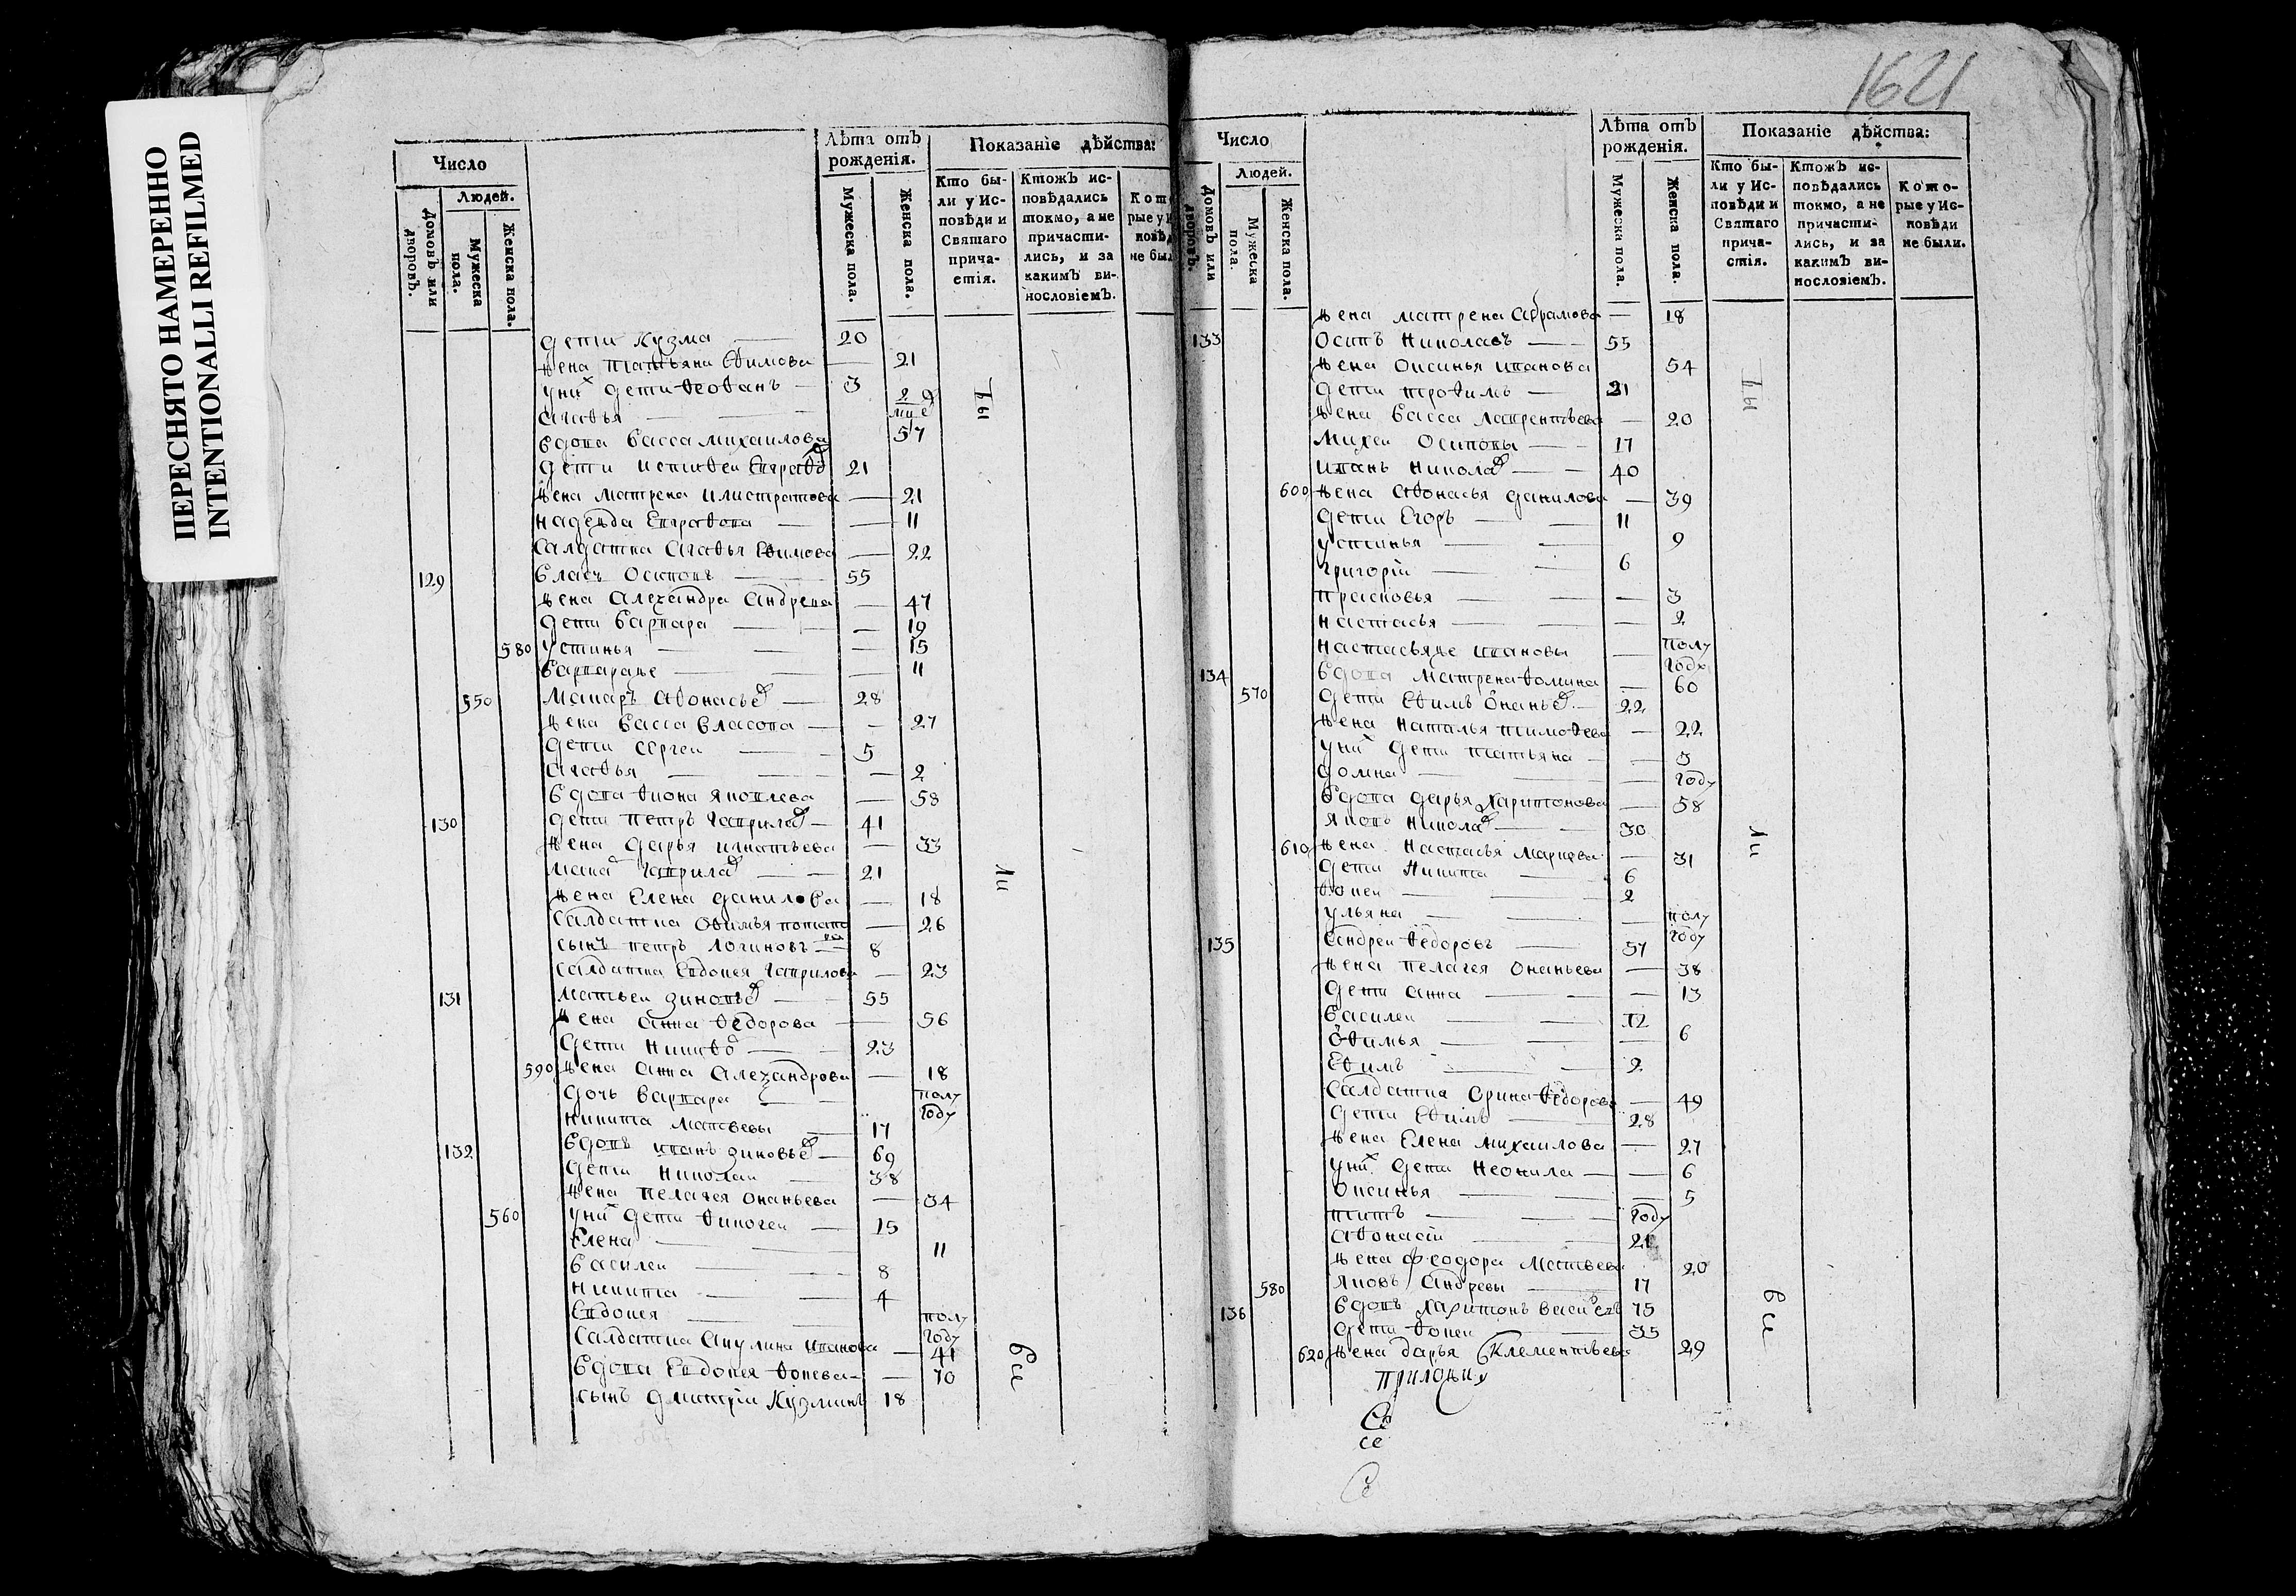 ПЕРЕСНЯТО НАМЕРЕННО
INTENTIONALLI REFILMED
Число
Людей.
Домовъ или дворовъ.
Мужеска пола.
Женска пола.
Лѣта отъ рожденія.
Мужеска пола.
Женска пола.
Показаніе дѣйства:
Кто были у Исповѣди и Святаго причастія.
Ктожъ исповѣдались токмо, а не причастились, и за какимъ винословіемъ.
дети Кузма 20
жена татьяна Ефимова 21
у них дети Феофанъ 3
Агафья 2
вдова Васса Михаилова 57
дети 21
жена матрена илистратова 21
надежда 11
Салдатка Агафья Ефимова 22
129 Власъ Осиповъ 55
жена Александра Андреева 47
дети Варвара 19
580 устинья 15
Варвара же 11
550 Макаръ Афонасьев 28
жена Васса Власова 27
дети Сергеи 5
Агафья 2
вдова Фиона Яковлева 58
130 дети петръ гаврилов 41
жена дарья игнатьева 33
гаврилов 21
жена Елена данилова 18
Салдатка Офимья 26
сынъ петръ логиновъ 8
Салдатка Евдокея гаврилова 23
131 матвеи зиновьев 55
жена анна Федорова 56
дети Никифо 23
590 жена анна Александрова 18
дочь Варвара полу году
никита матвеевы 17
132 вдовъ иванъ зиновьев 69
дети Николаи 38
жена пелагея онаньева 34
560 у них дети Финогеи 15
Елена 11
Василеи 8
никита 4
Евдокея полу году
Салдатка Акулина иванова 41
вдова Евдокея Фокеева 70
сынъ дмитріи Кузминъ 18
1621
Число
Людей.
Домовъ или дворовъ.
Мужеска пола.
Женска пола.
Лѣта отъ рожденія.
Мужеска пола.
Женска пола.
Показаніе дѣйства:
Кто были у Исповѣди и Святаго причастія.
Ктожъ исповѣдались токмо, а не причастились, и за какимъ винословіемъ.
Которые у Исповѣди не были.
жена матрена Абрамова 18
133 Осипъ Николаевъ 55
жена Оксинья иванова 54
дети трофимъ 21
жена Васса лаврентьева 20
михеи Осиповы 17
иванъ Никола 40
600 жена Афонасья данилова 39
дети Егоръ 11
устинья 9
григоріи 6
прасковья 3
настасья 2
настасья же ивановы полу году
134 вдова матрена Фомина 60
570 дети Ефимъ Онаньев 22
жена наталья тимофеева 22
у них дети татьяна 3
домна году
вдова дарья харитонова 58
Яковъ Никола 30
610 жена настасья маркова 31
дети Никита 6
Фокеи 2
ульяна полу году
135 андреи Федоровъ 57
жена пелагея Онаньева 38
дети анна 13
Василеи 12
Офимья 6
Ефимъ 2
Салдатка Орина Федорова 49
дети Ефимъ 28
жена Елена михаилова 27
у них дети Неонила 6
Оксинья 5
титъ году
Афонасіи 21
жена Феодора Матвеева 20
580 Яковъ Андреевы 17
136 вдовъ харитонъ 75
дети Фокеи 35
620 жена дарья Клементьева 29